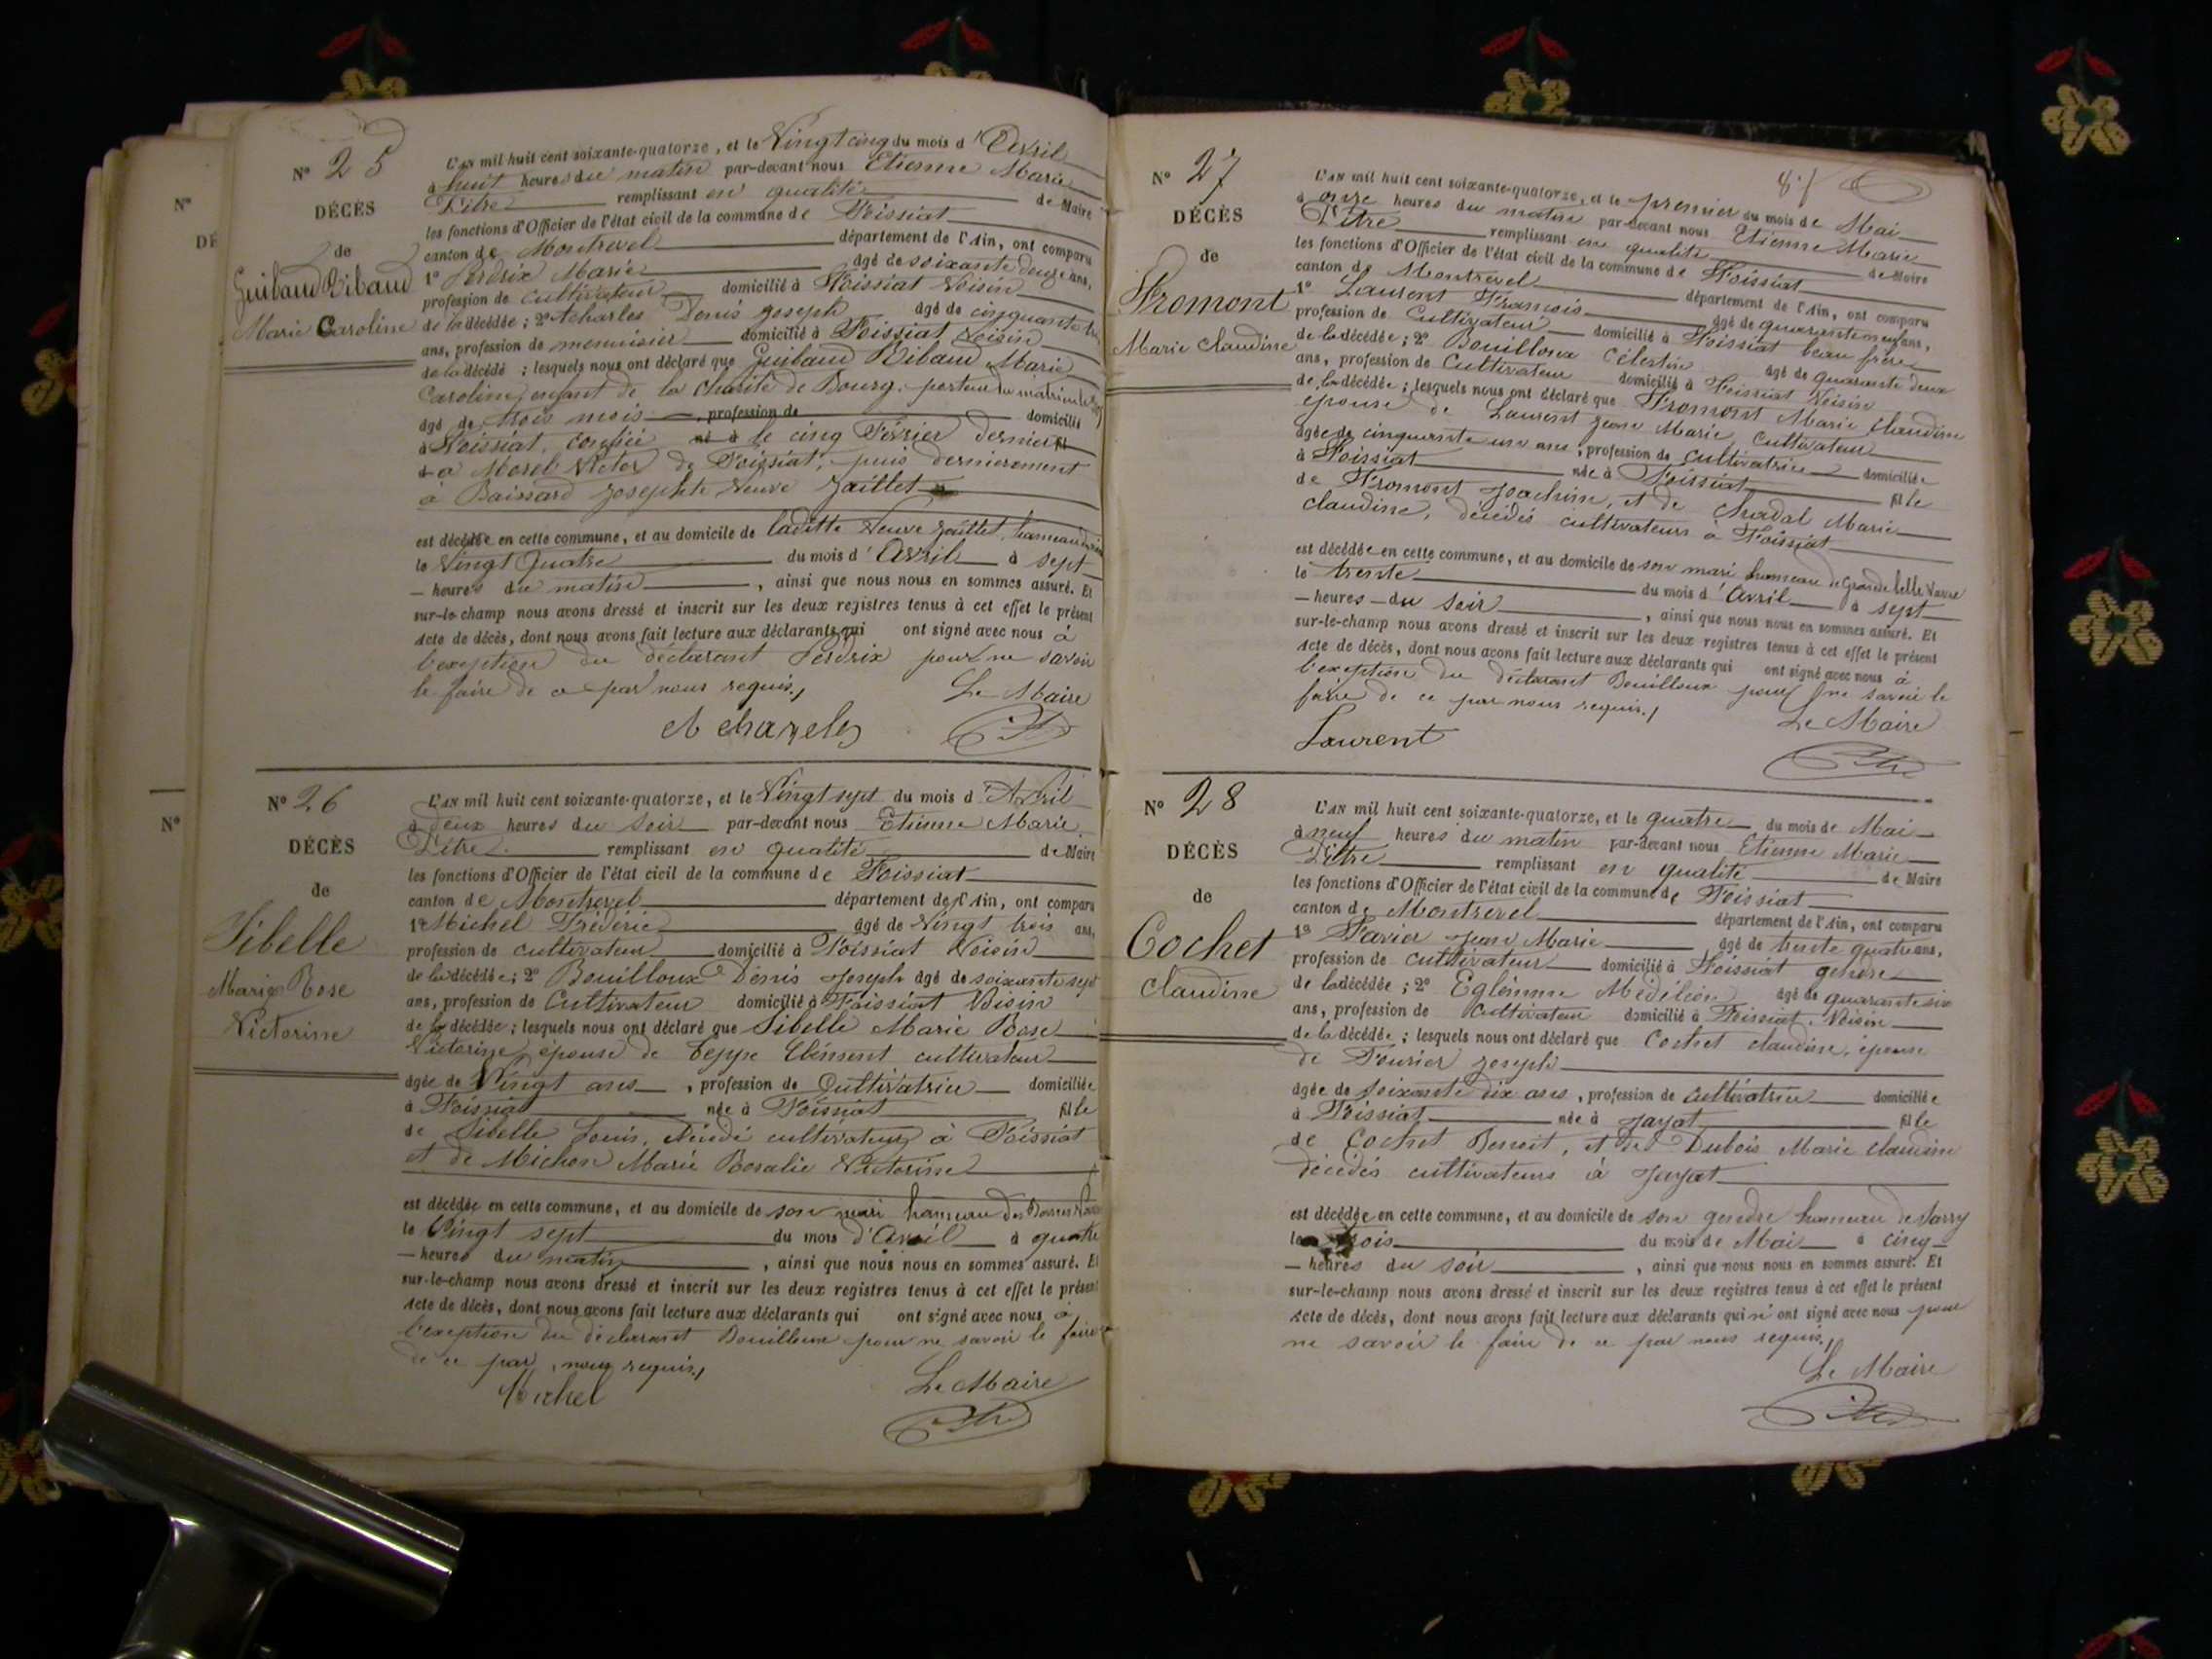 N° 25
DÉCÈS
de
Guibaud Ribaud
Marie Caroline
L'AN mil huit cent soixante-quatorze, et le Vingt cinq du mois d'Avril
à huit heures du matin par-devant nous Etienne Marie
Pitre remplissant en qualité de Maire
les fonctions d'Officier de l'état civil de la commune de Foissiat
canton de Montrevel département de l'Ain, ont comparu
1° Perdrix Marie âgé de soixante douze ans,
profession de cultivateur domicilié à Foissiat Voisin
de la décédée ; 2° Denis Joseph âgé de cinquante
ans, profession de menuisier domicilié à Foissiat Voisin
de la décédé ; lesquels nous ont déclaré que Guibaud Ribaud Marie
Caroline, enfant de la Charité de Bourg, portant le matricule
âgé de trois mois , profession de domicilié
à Foissiat, confiée né à le cinq Février dernier fil
d a Morel Victor de Foissiat, puis dernierement
à Baissard Josephte Veuve Jaillet
est décédée en cette commune, et au domicile de laditte Veuve Jaillet, hameau
le Vingt Quatre du mois d'Avril à sept
heures du matin , ainsi que nous nous en sommes assuré. Et
sur-le-champ nous avons dressé et inscrit sur les deux registres tenus à cet effet le présent
acte de décès, dont nous avons fait lecture aux déclarants qui ont signé avec nous à
l'exeption du déclarant Perdrix pour ne savoir
le faire de ce par nous requis./
Le Maire
N° 26
DÉCÈS
de
Sibelle
Marie Rose
Victorine
L'AN mil huit cent soixante-quatorze, et le Vingt sept du mois d'Avril
à deux heures du soir par-devant nous Etienne Marie
Pitre remplissant en qualité de Maire
les fonctions d'Officier de l'état civil de la commune de Foissiat
canton de Montrevel département de l'Ain, ont comparu
1° Michel Fréderic âgé de Vingt trois ans,
profession de cultivateur domicilié à Foissiat Voisin
de la décédée ; 2° Bouilloux Denis Joseph âgé de soixante sept
ans, profession de Cultivateur domicilié à Foissiat Voisin
de la décédée ; lesquels nous ont déclaré que Sibelle Marie Rose
Victorine, épouse de Teppe Clément cultivateur
âgée de Vingt ans , profession de Cultivatrice domiciliée
à Foissiat née à Foissiat fille
de Sibelle Louis, décédé cultivateur à Foissiat
et de Michon Marie Rosalie Victorine
est décédée en cette commune, et au domicile de son mari hameau des
le Vingt sept du mois d'Avril à quatre
heures du matin , ainsi que nous nous en sommes assuré. Et
sur-le-champ nous avons dressé et inscrit sur les deux registres tenus à cet effet le présent
acte de décès, dont nous avons fait lecture aux déclarants qui ont signé avec nous à
l'exeption du déclarant Bouilloux pour ne savoir le faire
de ce par nous requis./
Michel
Le Maire
N° 27
DÉCÈS
de
Fromont
Marie Claudine
L'AN mil huit cent soixante-quatorze, et le premier du mois de Mai
à onze heures du matin par-devant nous Etienne Marie
Pitre remplissant en qualité de Maire
les fonctions d'Officier de l'état civil de la commune de Foissiat
canton de Montrevel département de l'Ain, ont comparu
1° Laurent François âgé de quarante neuf ans,
profession de Cultivateur domicilié à Foissiat beau frère
de la décédée ; 2° Bouilloux Célestin âgé de quarante deux
ans, profession de Cultivateur domicilié à Foissiat Voisin
de la décédée ; lesquels nous ont déclaré que Fromont Marie Claudine
épouse de Laurent Jean Marie Cultivateur
âgée de cinquante un ans , profession de cultivatrice domiciliée
à Foissiat née à Foissiat fille
de Fromont Joachim, et de Chadal Marie
Claudine, décédés cultivateurs à Foissiat
est décédée en cette commune, et au domicile de son mari hameau de Grande
le trente du mois d'Avril à sept
heures du soir , ainsi que nous nous en sommes assuré. Et
sur-le-champ nous avons dressé et inscrit sur les deux registres tenus à cet effet le présent
acte de décès, dont nous avons fait lecture aux déclarants qui ont signé avec nous à
l'exeption du déclarant Bouilloux pour ne savoir le
faire de ce par nous requis./
Le Maire
Laurent
N° 28
DÉCÈS
de
Cochet
Claudine
L'AN mil huit cent soixante-quatorze, et le quatre du mois de Mai
à neuf heures du matin par-devant nous Etienne Marie
Pitre remplissant en qualité de Maire
les fonctions d'Officier de l'état civil de la commune de Foissiat
canton de Montrevel département de l'Ain, ont comparu
1° Favier Jean Marie âgé de trente quatre ans,
profession de cultivateur domicilié à Foissiat gendre
de la décédée ; 2° âgé de quarante six
ans, profession de Cultivateur domicilié à Foissiat, Voisin
de la décédée ; lesquels nous ont déclaré que Cochet claudine, épouse
de Fourier Joseph
âgée de soixante dix ans , profession de cultivatrice domiciliée
à Foissiat née à Jayat fille
de Cochet Benoit, et de Dubois Marie Claudine
décédés cultivateurs à Jayat
est décédée en cette commune, et au domicile de son gendre hameau de
le trois du mois de Mai à cinq
heures du soir , ainsi que nous nous en sommes assuré. Et
sur-le-champ nous avons dressé et inscrit sur les deux registres tenus à cet effet le présent
acte de décès, dont nous avons fait lecture aux déclarants qui n'ont signé avec nous pour
ne savoir le faire de ce par nous requis./
Le Maire